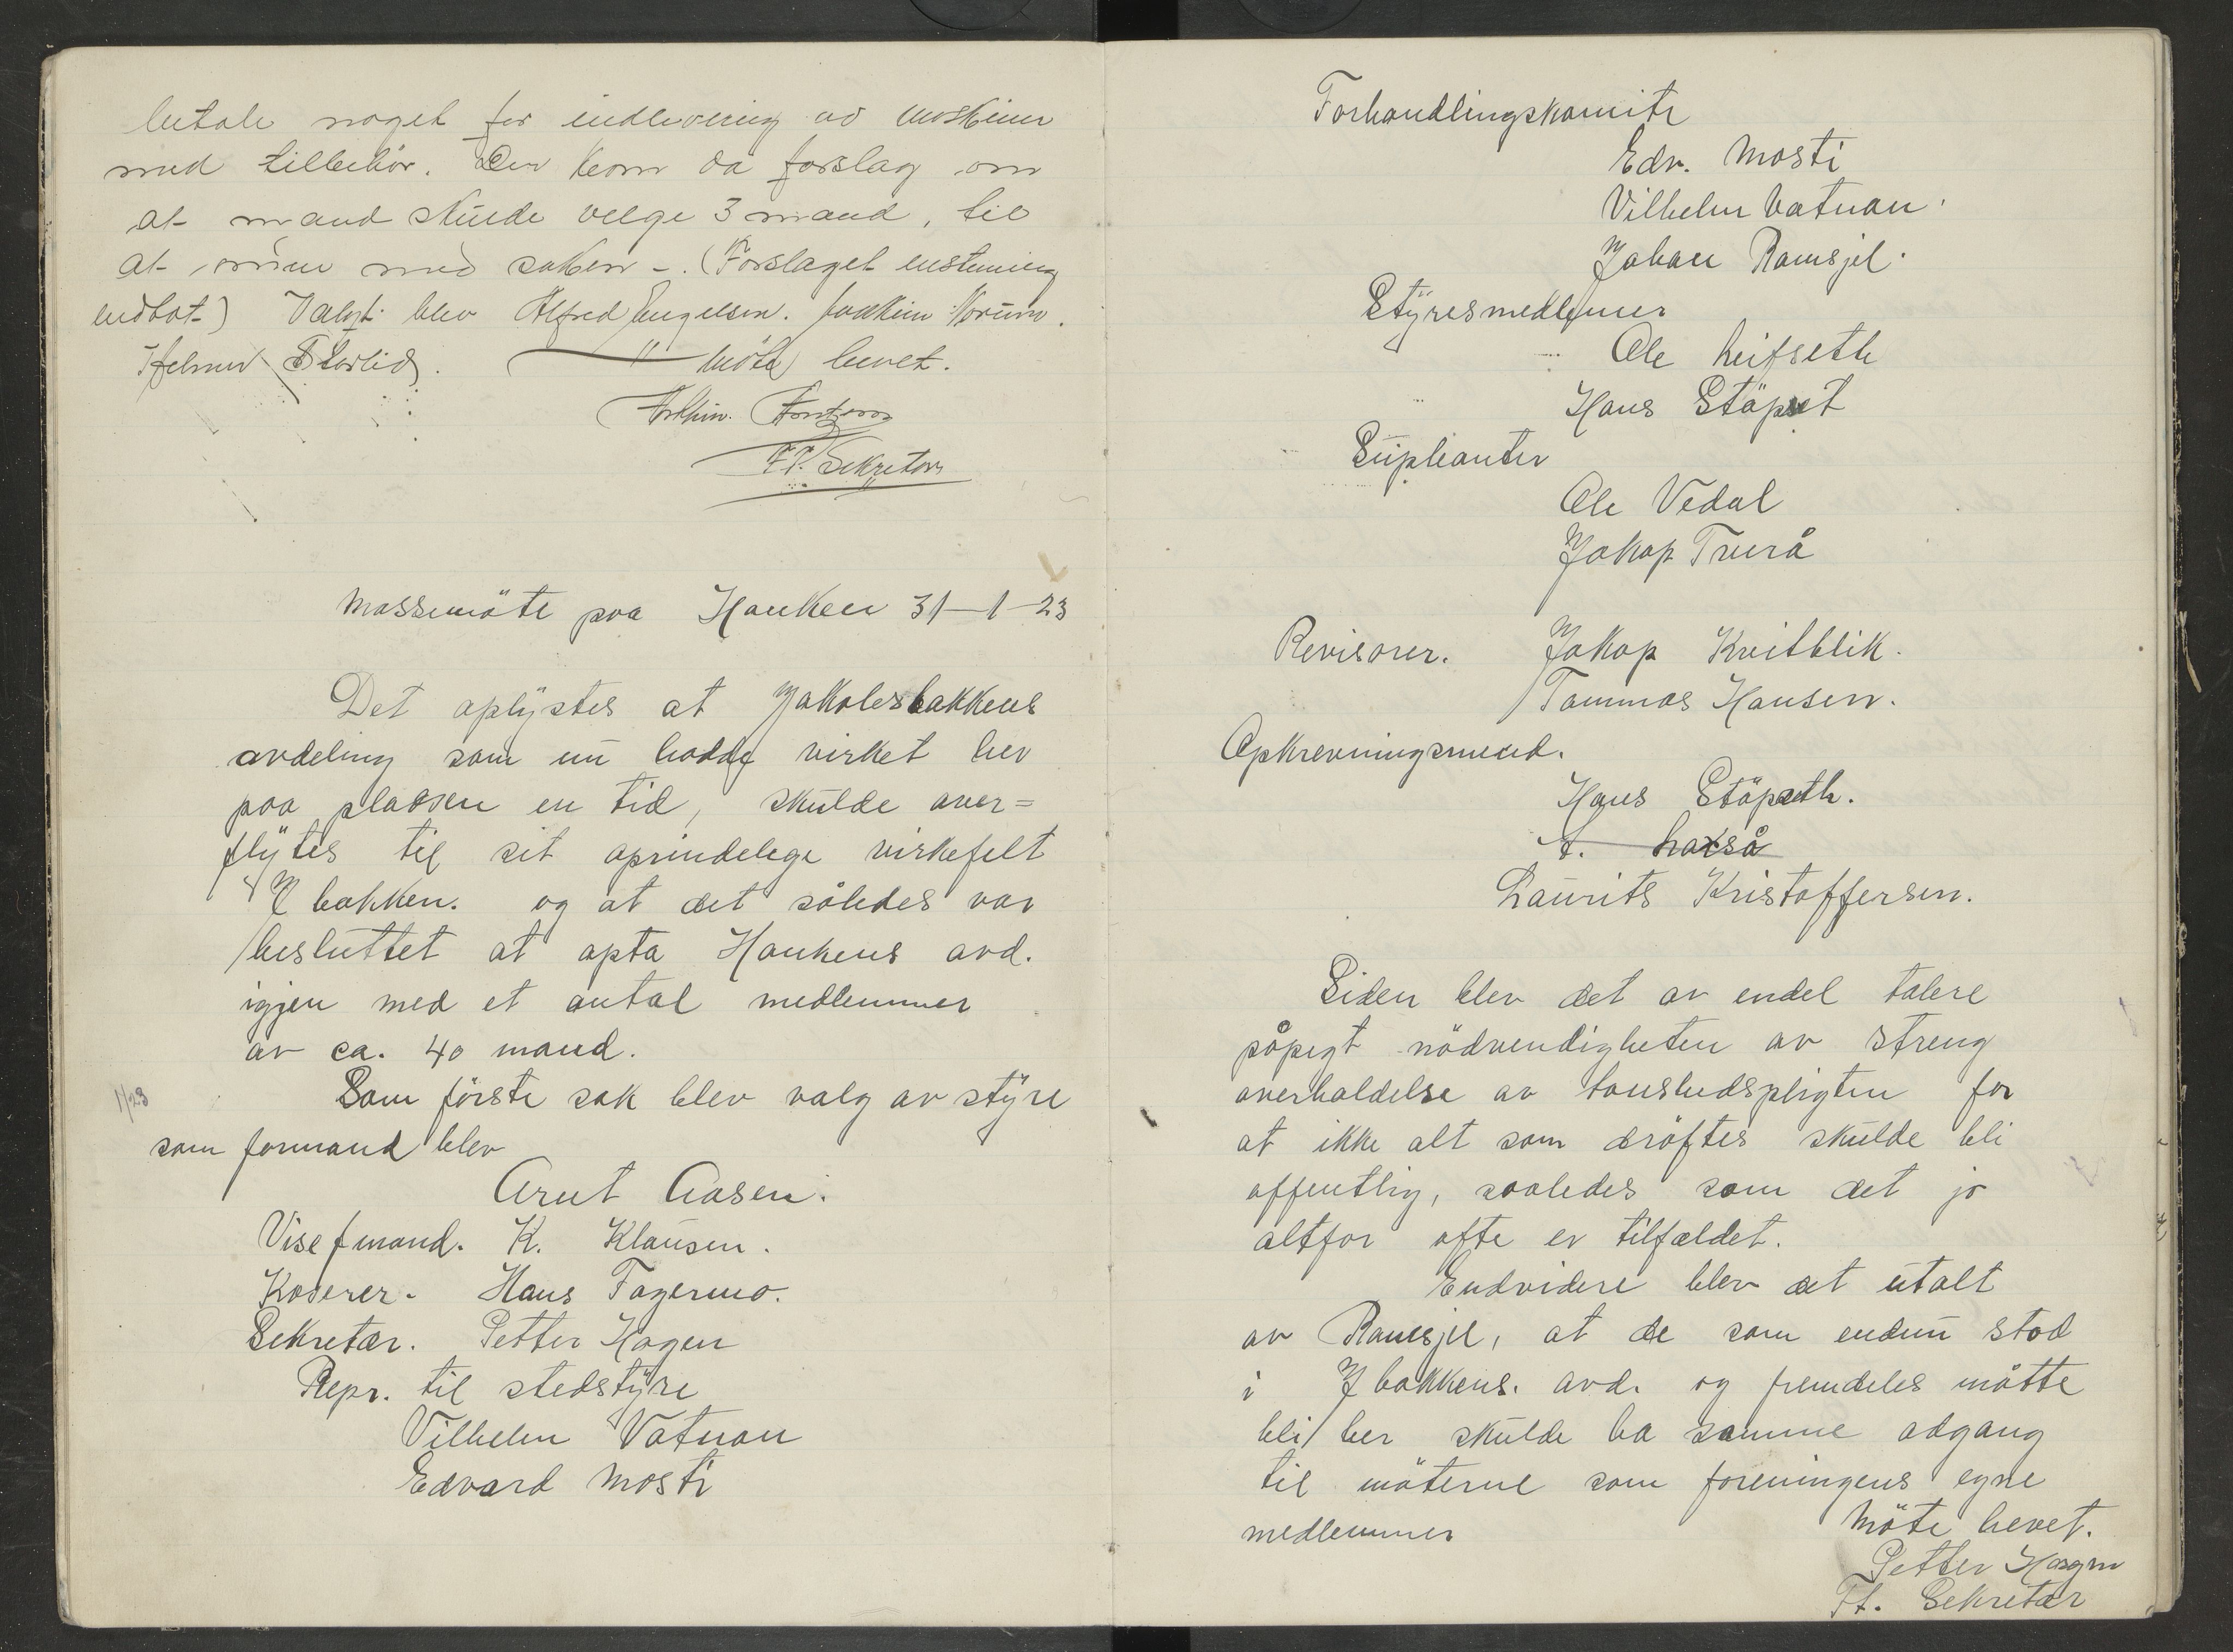 betale noget for indlevering av maskiner
med tilbehör. Der kom da forslag om
at mand skulde velge 3 mand, til
at ordne med saken -. (Forslaget enstemmig
vedtat) Valgt blev Alfred Engelsen. Joakim Norum.
Helmer Storlid. " Möte hevet.
F.T. Sekretær
Massemöte paa Hanken 31-1-23
Det oplystes at Jakobsbakkens
avdeling som nu hadde virket her
paa plassen en tid, skulde over=
flytes til sit oprindelege virkefelt
J bakken. og at det således var
besluttet at opta Hankens avd.
igjen med et antal medlemmer
av ca. 40 mand.
1/23
Som förste sak blev valg av styre
som formand blev
Arnt Aasen.
Vise fmand. K. Klausen.
Kaserer. Hans Fagermo.
Sekretær. Petter Hagen
Repr. til stedstyre
Vilhelm Vatnan
Edvard Mosti
Forhandlingskomite
Edv. Mosti
Vilhelm Vatnan.
Johan Ramsjel.
Styresmedlemer
Ole Leifseth
Hans Stöpset
Supleanter
Ole Vedal
Jakop Tverå
Revisorer. Jakop Kvitblik.
Tommas Hansen.
Opkrevningsmend.
Hans Stöpseth.
A. Laxså
Laurits Kristoffersen.
Siden blev det av endel talere
påpegt nödvendigheten av streng
overholdelse av taushedspligten for
at ikke alt som dröftes skulde bli
offentlig, saaledes som det jo
altfor ofte er tilfældet.
Endvidere blev det utalt
av Ramsjel, at de som endnu stod
i J bakkens. avd. og fremdeles måtte
bli her skulde ha samme adgang
til möterne som foreningens egne
medlemmer
Möte hevet.
Petter Hagen
Ft. Sekretær